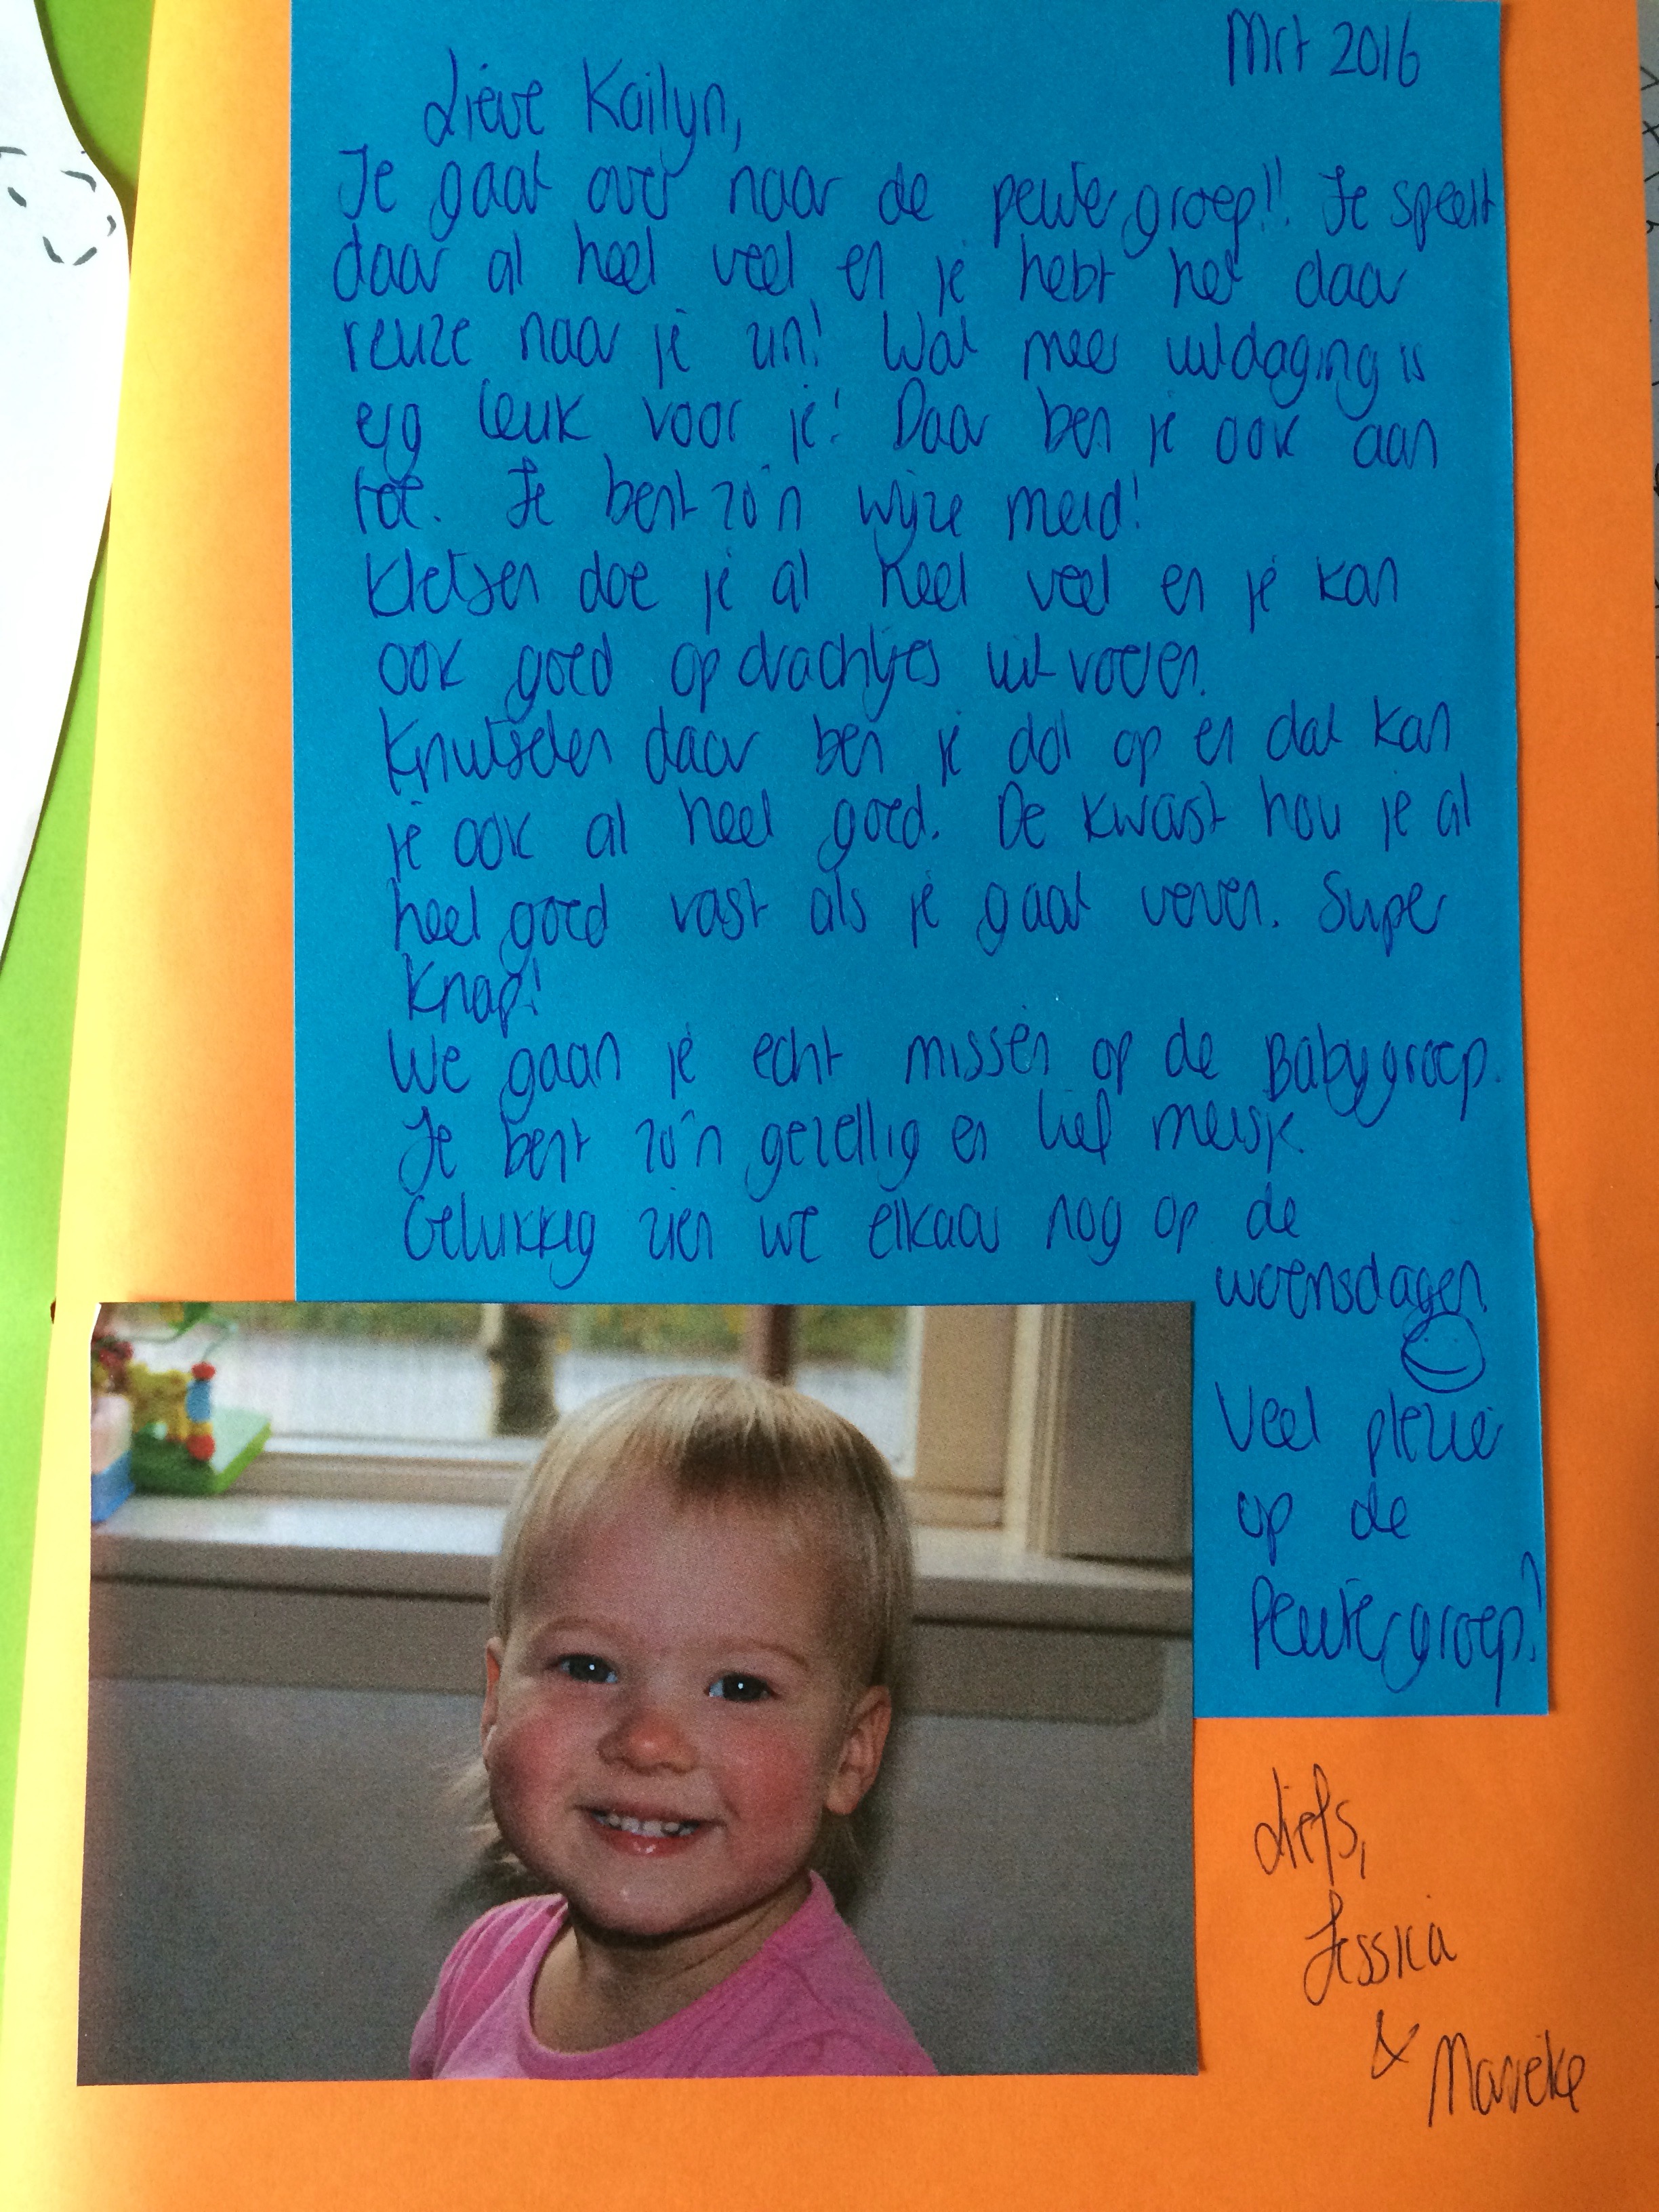 Mrt 2016
Lieve Kailyn,
Je gaat over naar de peutergroep!! Je speelt
daar al heel veel en je hebt het daar
reuze naar je zin! Wat meer uitdaging is
erg leuk voor je! Daar ben je ook aan
toe. Je bent zo'n wijze meid!
Kletsen doe je al heel veel en je kan
ook goed opdrachtjes uitvoeren.
Knutselen daar ben je dol op en dat kan
je ook al heel goed. De kwast hou je al
heel goed vast als je gaat verven. Super
Knap!
We gaan je echt missen op de Babygroep.
Je bent zo'n gezellig en lief meisje.
Gelukkig zien we elkaar nog op de
woensdagen
Veel plezier
op de
Peutergroep!
Liefs,
Jessica
& Marieke